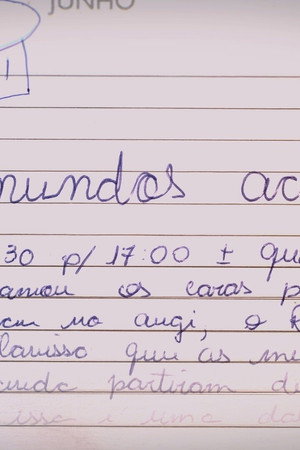 JUNHO
mundos ac
30 p/ 17:00 ± qu
os caras p
no augi, o
larisso que as mu
partiram de
isso é uma da